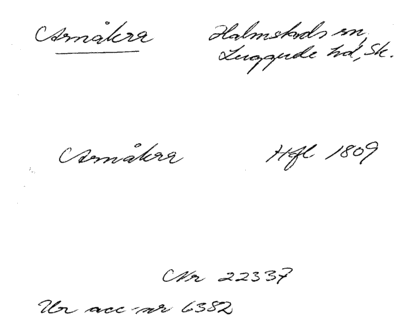 Arnåkra Halmstads sn,
Luggude hd, Sk.
Arnåkra Hfl 1809
Nr 22337
Ur acc-nr 6382